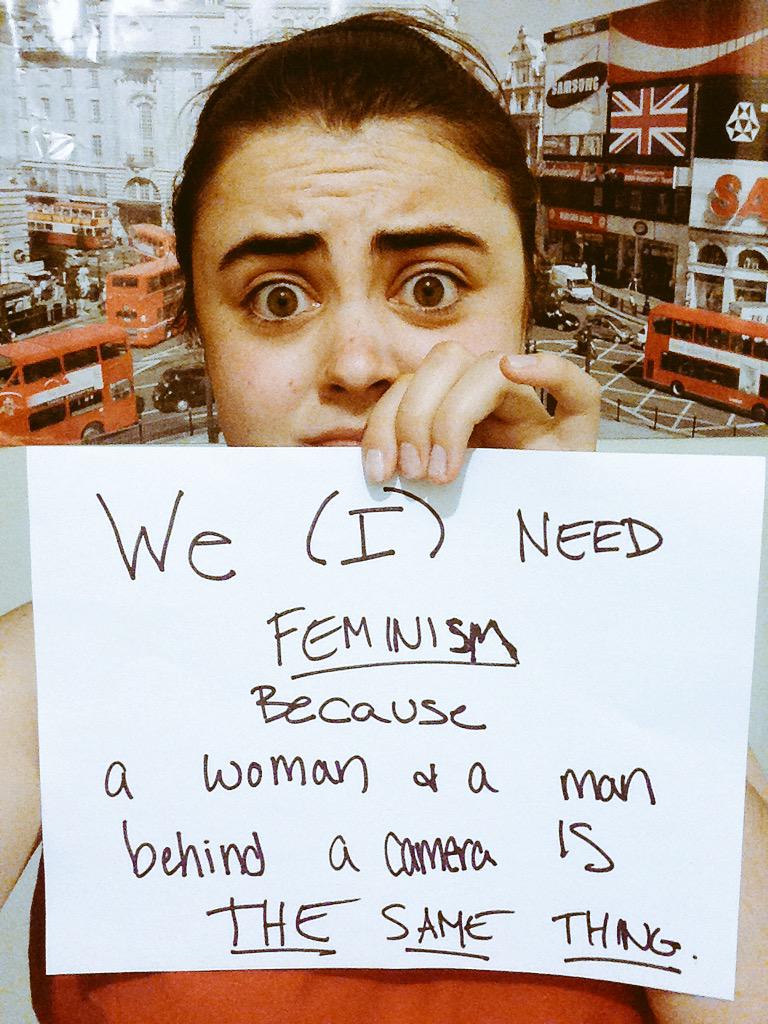 SAMSUNG
SA
We (I) NEED
FEMINISM
Because
a woman & a man
behind a camera IS
THE SAME THING.